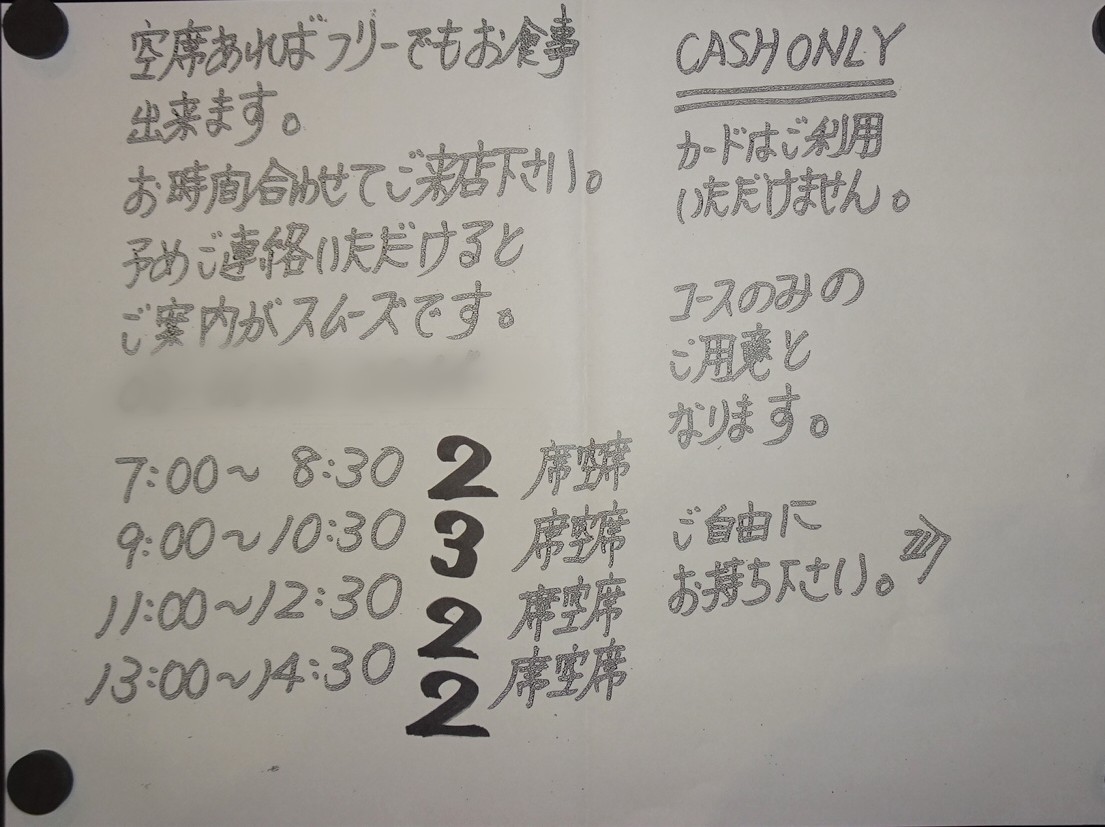 空席あればフリーでもお食事
出来ます。
お時間合わせてご来店下さい。
予めご連絡いただけると
ご案内がスムーズです。
7:00〜 8:30 2 席空席
9:00〜10:30 3 席空席
11:00〜12:30 2 席空席
13:00〜14:30 2 席空席
CASH ONLY
カードはご利用
いただけません。
コースのみの
ご用意と
なります。
ご自由に
お持ち下さい。